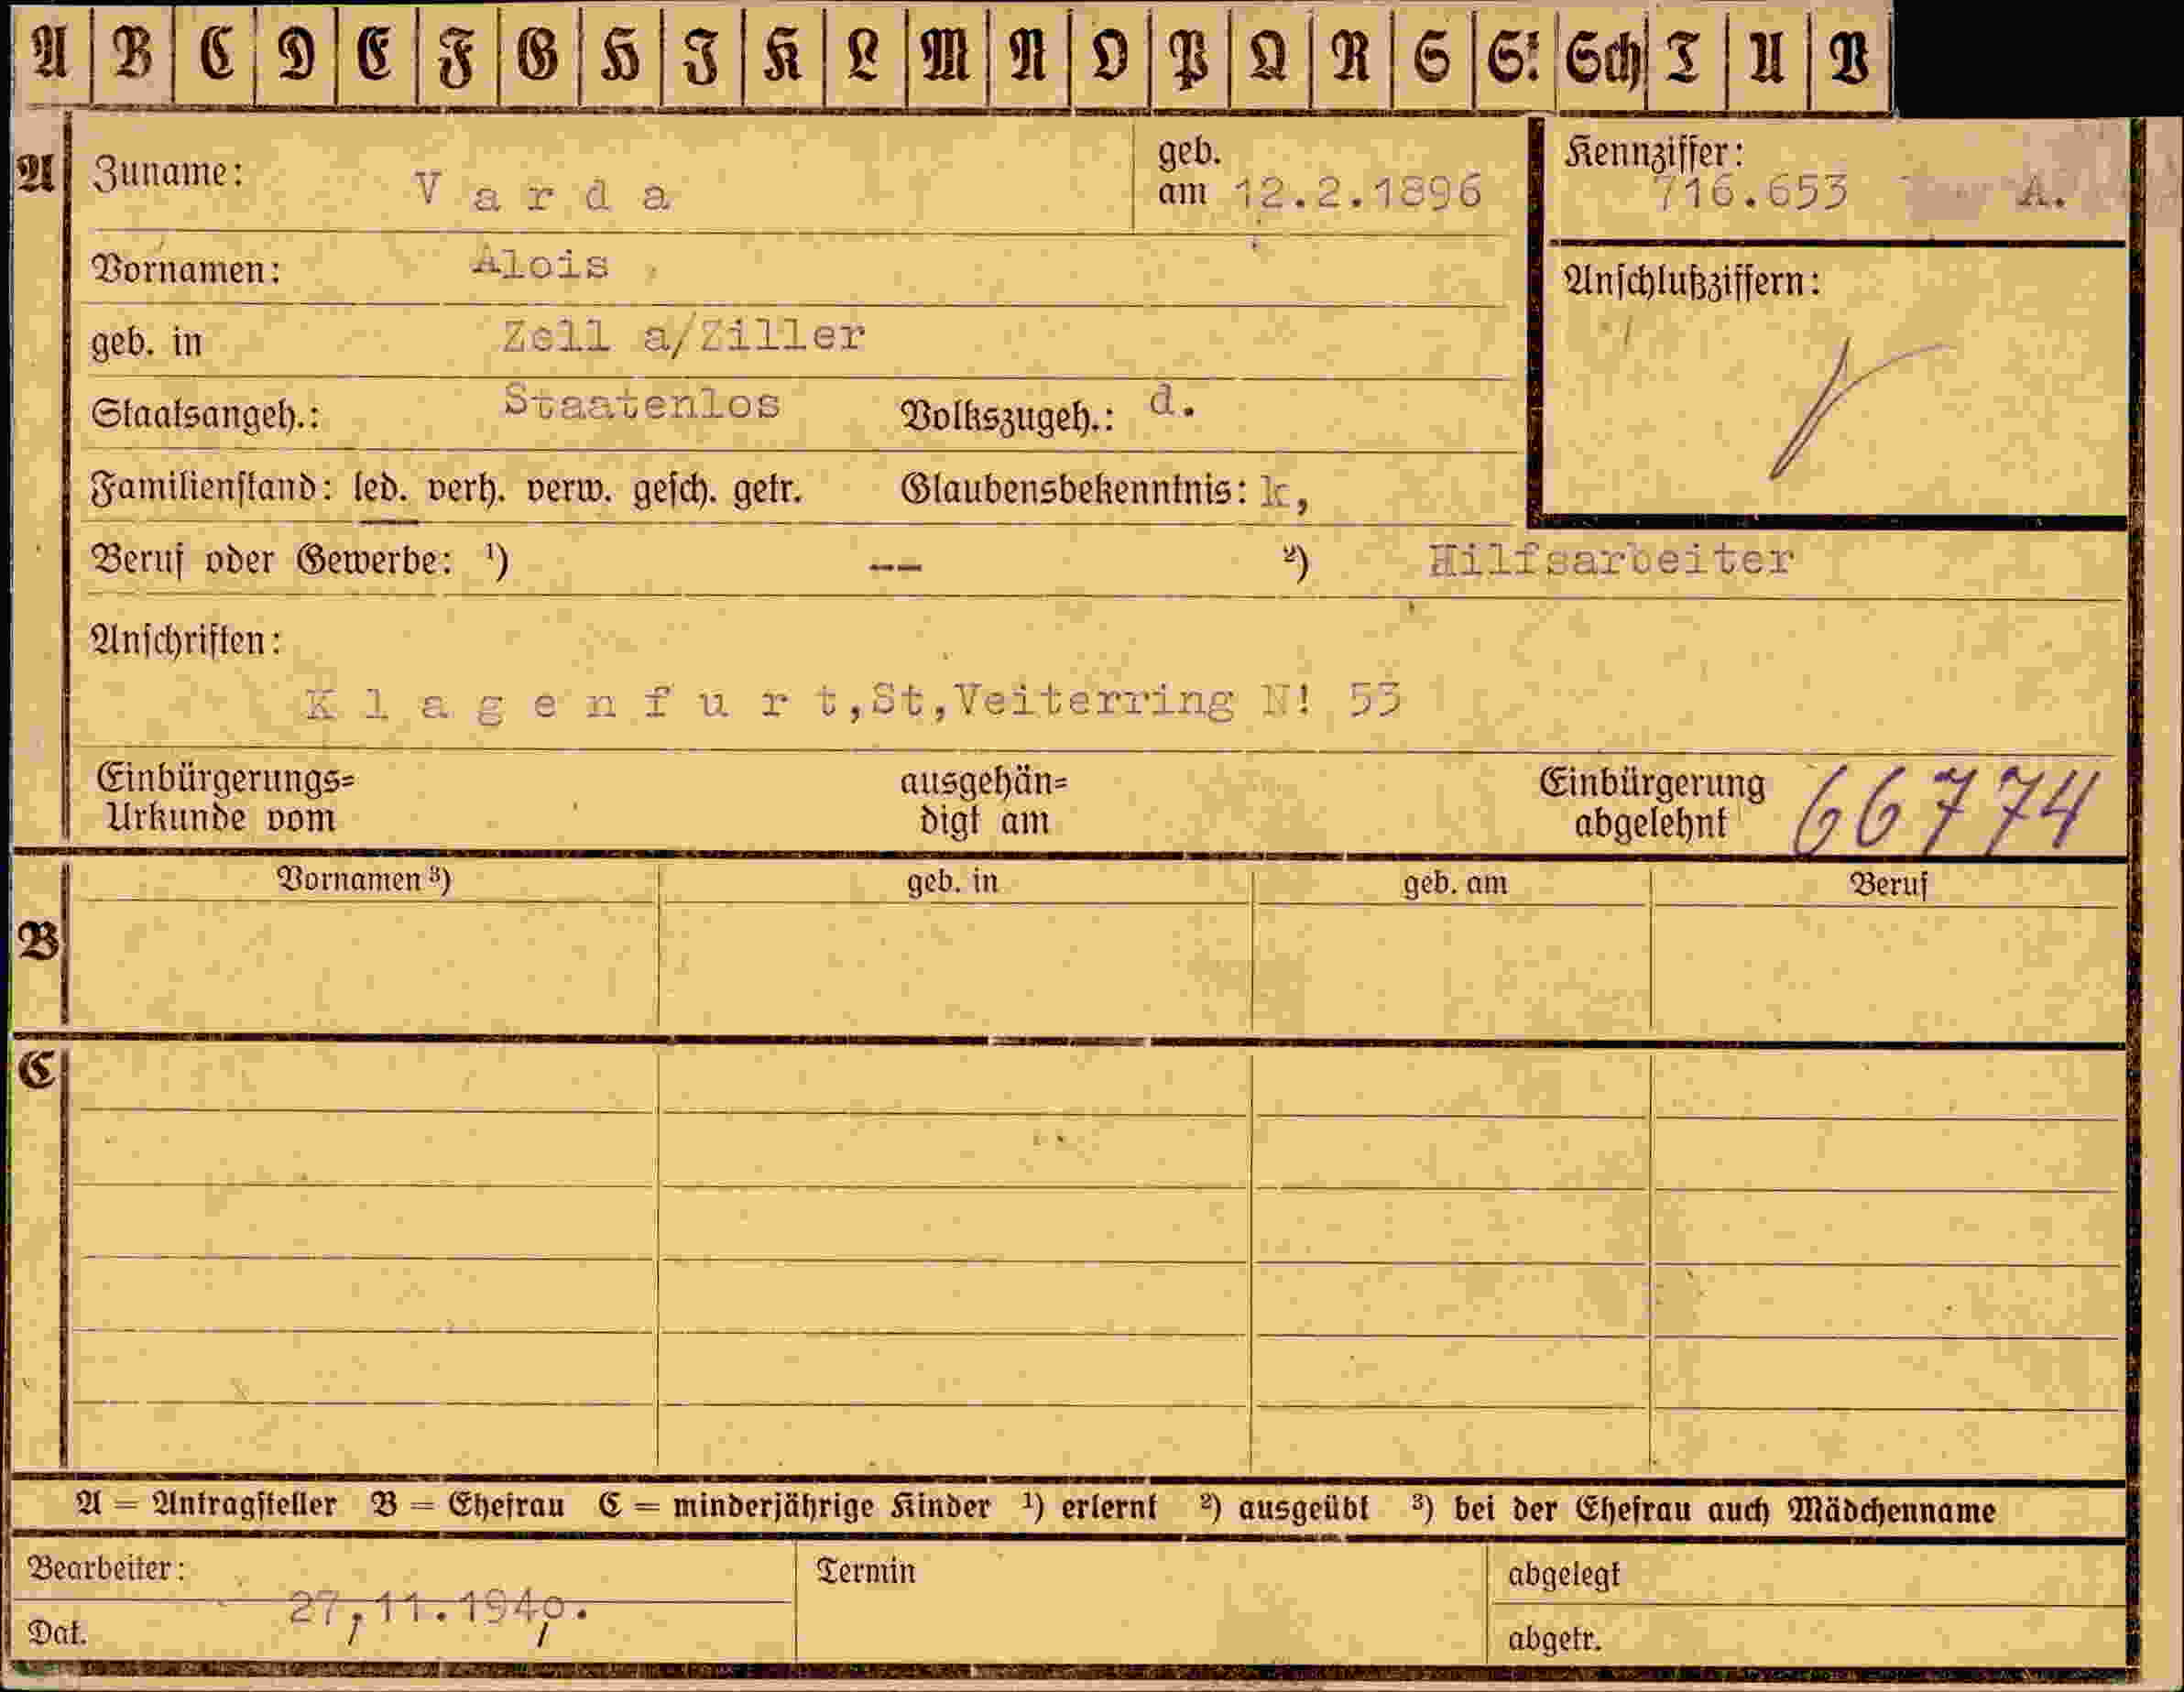 A B C D E F G H I K L M N O P Q R S St Sch T U V
A Zuname: Varda geb. am 12.2.1896 Kennziffer: 716.653 A.
Vornamen: Alois
Anschlußziffern:
geb. in Zell a/Ziller
Staatsangeh.: Staatenlos Volkszugeh.: d.
Familienstand: led. verh. verw. gesch. getr. Glaubensbekenntnis: k,
Beruf oder Gewerbe: ¹) -- ²) Hilfsarbeiter
Anschriften:
Klagenfurt,St,Veiterring N! 53
Einbürgerungs= ausgehän= Einbürgerung 66774
Urkunde vom digt am abgelehnt
Vornamen ³) geb. in geb. am Beruf
B
C
A = Antragsteller B = Ehefrau C = minderjährige Kinder ¹) erlernt ²) ausgeübt ³) bei der Ehefrau auch Mädchenname
Bearbeiter: Termin abgelegt
27,11.1940.
Dat. abgetr.